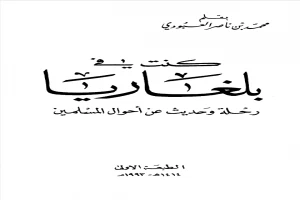 بقلم
محمد بن ناصر العبودي
كنت في
بلغاريا
رحلة وحديث عن أحوال المسلمين
الطبعة الأولى
١٤١٤هـ - ١٩٩٣م